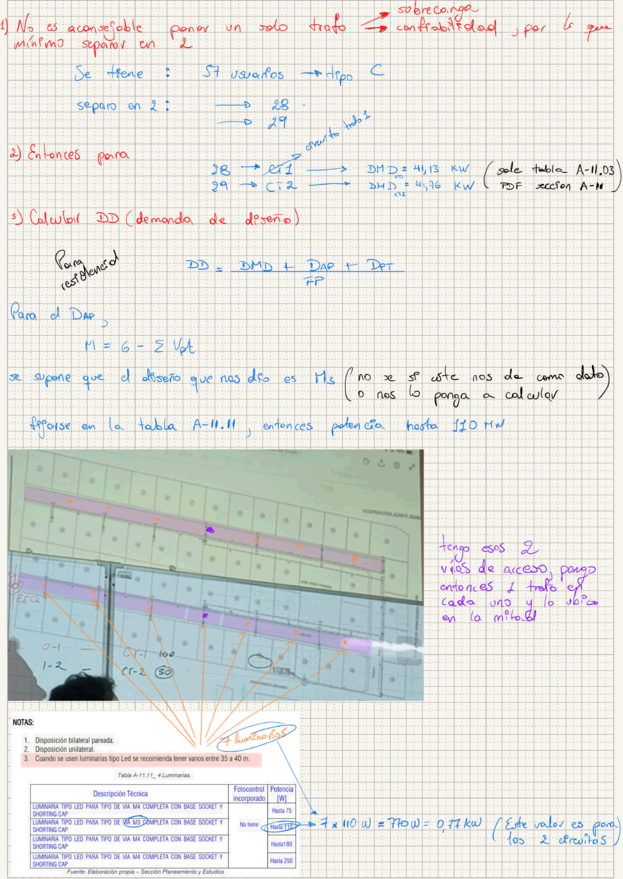 1) No es aconsejable poner un solo trafo → sobrecarga
→ confiabilidad, por lo que
mínimo separar en 2
Se tiene : 57 usuarios → tipo C
separo en 2 : → 28
→ 29
2) Entonces para
circuito trafo 1
28 → CT1 → DMD CT1 = 41,13 KW (sale tabla A-11.03
29 → CT2 → DMD CT2 = 41,76 KW PDF sección A-11)
3) Calcular DD (demanda de diseño)
Para residencial
DD = DMD + DAP + DPT
FP
Para el DAP,
M = 6 - Σ Vpt
se supone que el diseño que nos dio es M3 (no se si este nos da como dato
o nos lo ponga a calcular)
fijarse en la tabla A-11.11, entonces potencia hasta 110 MW
tengo esas 2
vias de acceso, pongo
entonces 1 trafo en
cada uno y lo ubico
en la mitad
0-1
1-2
CT-1 100
CT-2 50
NOTAS:
7 luminarias
1. Disposición bilateral pareada.
2. Disposición unilateral.
3. Cuando se usen luminarias tipo Led se recomienda tener vanos entre 35 a 40 m.
Tabla A-11.11_ 4 Luminarias.
Descripción Técnica Fotocontrol incorporado Potencia [W]
LUMINARIA TIPO LED PARA TIPO DE VIA M4 COMPLETA CON BASE SOCKET Y SHORTING CAP Hasta 75
LUMINARIA TIPO LED PARA TIPO DE VIA M3 COMPLETA CON BASE SOCKET Y SHORTING CAP No tiene Hasta 110
LUMINARIA TIPO LED PARA TIPO DE VIA M4 COMPLETA CON BASE SOCKET Y SHORTING CAP Hasta180
LUMINARIA TIPO LED PARA TIPO DE VIA M4 COMPLETA CON BASE SOCKET Y SHORTING CAP Hasta 250
Fuente: Elaboración propia – Sección Planeamiento y Estudios
→ 7 * 110 W = 770 W = 0,77 KW (Este valor es para
los 2 circuitos)